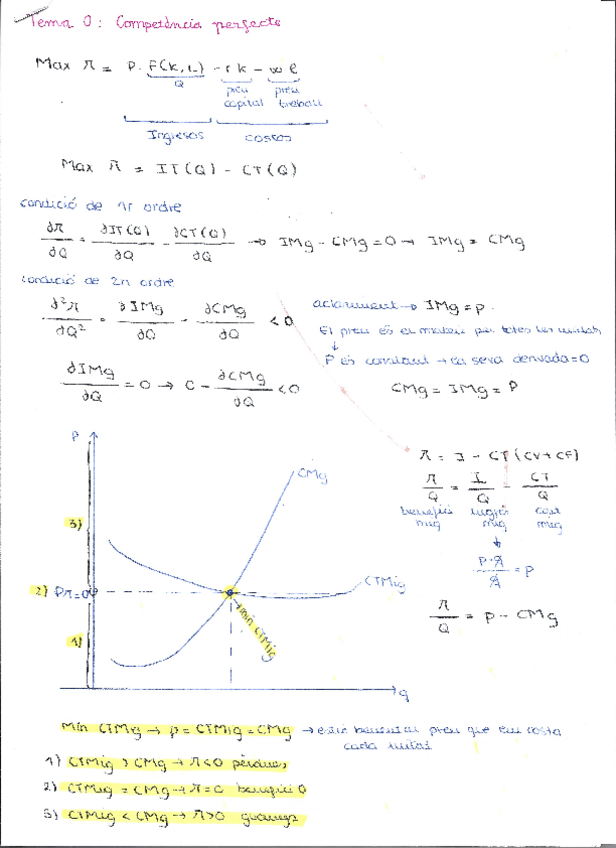 Tema 0: Competència perfecte
Max π = P. F(K, L) - rk - wl
Q preu capital preu treball
Ingresos costos
Max π = IT(Q) - CT(Q)
condició de 1r ordre
∂π/∂Q = ∂IT(Q)/∂Q - ∂CT(Q)/∂Q → IMg - CMg = 0 → IMg = CMg
condició de 2n ordre
∂²π/∂Q² = ∂IMg/∂Q - ∂CMg/∂Q < 0
aclariment → IMg = p.
El preu és el mateix per totes les unitats
↓
P és constant → la seva derivada = 0
∂IMg/∂Q = 0 → 0 - ∂CMg/∂Q < 0
CMg = IMg = P
π = I - CT (CV + CF)
π/Q = I/Q - CT/Q
benefici mig ingrés mig cost mig
↓
P·Q/Q = P
π/Q = p - CMg
P
CMg
3)
CTMig
2) Pπ=0
mín CTMig
1)
q
Mín CTMg → p = CTMig = CMg → està benent al preu que em costa
cada unitat
1) CTMig > CMg → π<0 pèrdues
2) CTMig = CMg → π=0 benefici 0
3) CTMig < CMg → π>0 guanys